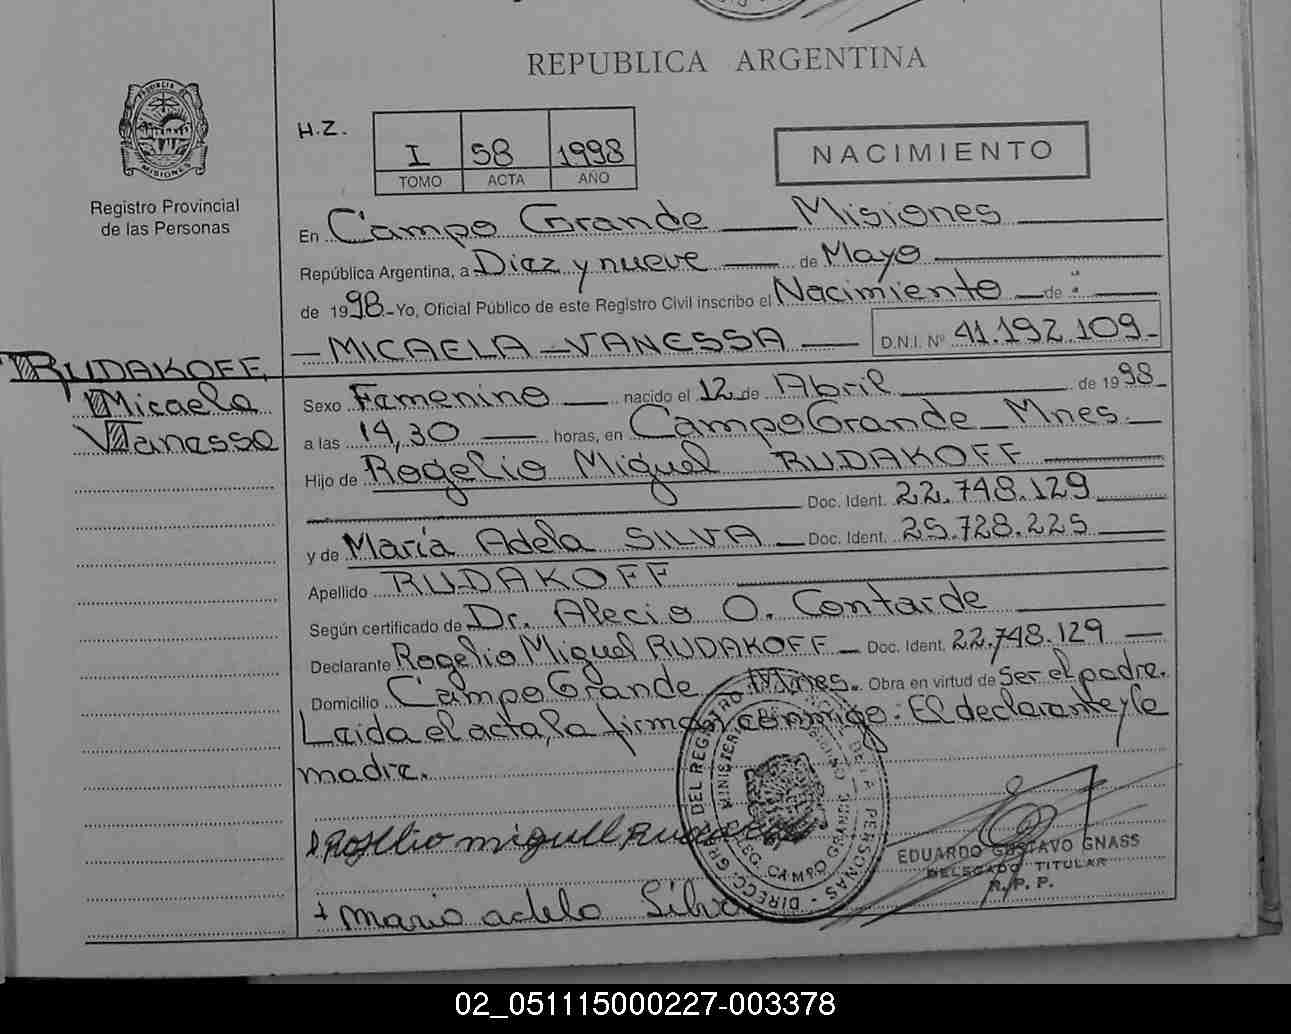 REPUBLICA ARGENTINA
PROVINCIA DE
MISIONES
Registro Provincial
de las Personas
H.Z.
I 58 1998
TOMO ACTA AÑO
NACIMIENTO
En Campo Grande Misiones
República Argentina, a Diez y nueve de Mayo
de 1998 - Yo, Oficial Público de este Registro Civil inscribo el Nacimiento de :
- MICAELA - VANESSA D.N.I. Nº 41.192.109-
RUDAKOFF,
Micaela
Vanessa
Sexo Femenino nacido el 12 de Abril de 1998
a las 14,30 horas, en Campo Grande - Mnes.
Hijo de Rogelio Miguel RUDAKOFF
Doc. Ident. 22.748.129
y de María Adela SILVA Doc. Ident. 25.728.225
Apellido RUDAKOFF
Según certificado de Dr. Alecio O. Contarde
Declarante Rogelio Miguel RUDAKOFF - Doc. Ident. 22.748.129
Domicilio Campo Grande - Mnes. Obra en virtud de Ser el padre.
Leida el acta, la firman conmigo: El declarante y la
madre.
Rogelio miguel
maria adela Silva
DIRECC. GRAL. DEL REGISTRO DE LAS PERSONAS
MINISTERIO DE GOBIERNO
DELEG. CAMPO GRANDE
EDUARDO GUSTAVO GNASS
DELEGADO TITULAR
R. P. P.
02_051115000227-003378